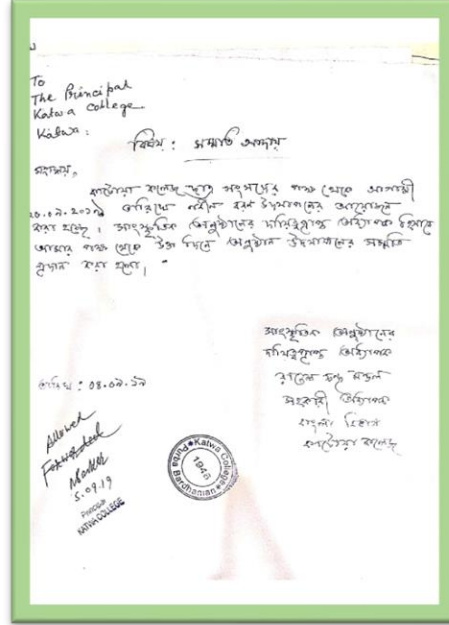 To
The Principal
Katwa College
Katwa
বিষয় : সম্মতি আদায়
মহাশয়,
কাটোয়া কলেজ ছাত্র সংসদের পক্ষ থেকে আগামী
তারিখে নবীন বরণ উদযাপনের আয়োজন
করা হচ্ছে। সাংস্কৃতিক অনুষ্ঠানের দায়িত্বপ্রাপ্ত অধ্যাপক হিসাবে
আমার পক্ষ থেকে উক্ত দিনে অনুষ্ঠান উদযাপনের সম্মতি
প্রদান করা হলো।
সাংস্কৃতিক অনুষ্ঠানের
দায়িত্বপ্রাপ্ত অধ্যাপক
মন্ডল
সহকারী অধ্যাপক
বাংলা বিভাগ
কাটোয়া কলেজ
তারিখ : 04.09.19
Allowed
Forwarded
5.09.19
Principal
KATWA COLLEGE
Katwa College
Purba Bardhaman
1948